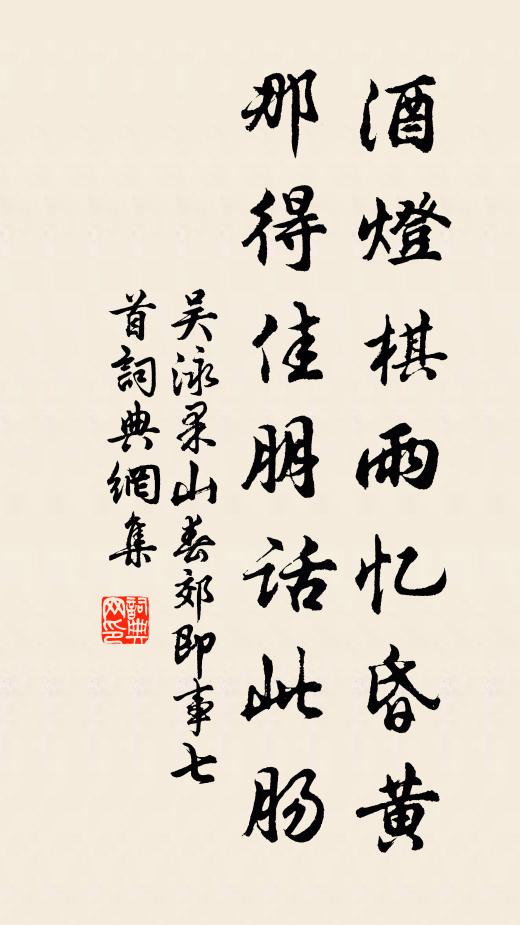 酒燈棋雨忆昏黄
那得佳朋话此肠
吴泳果山春郊即事七
首詞典網集
詞典网印